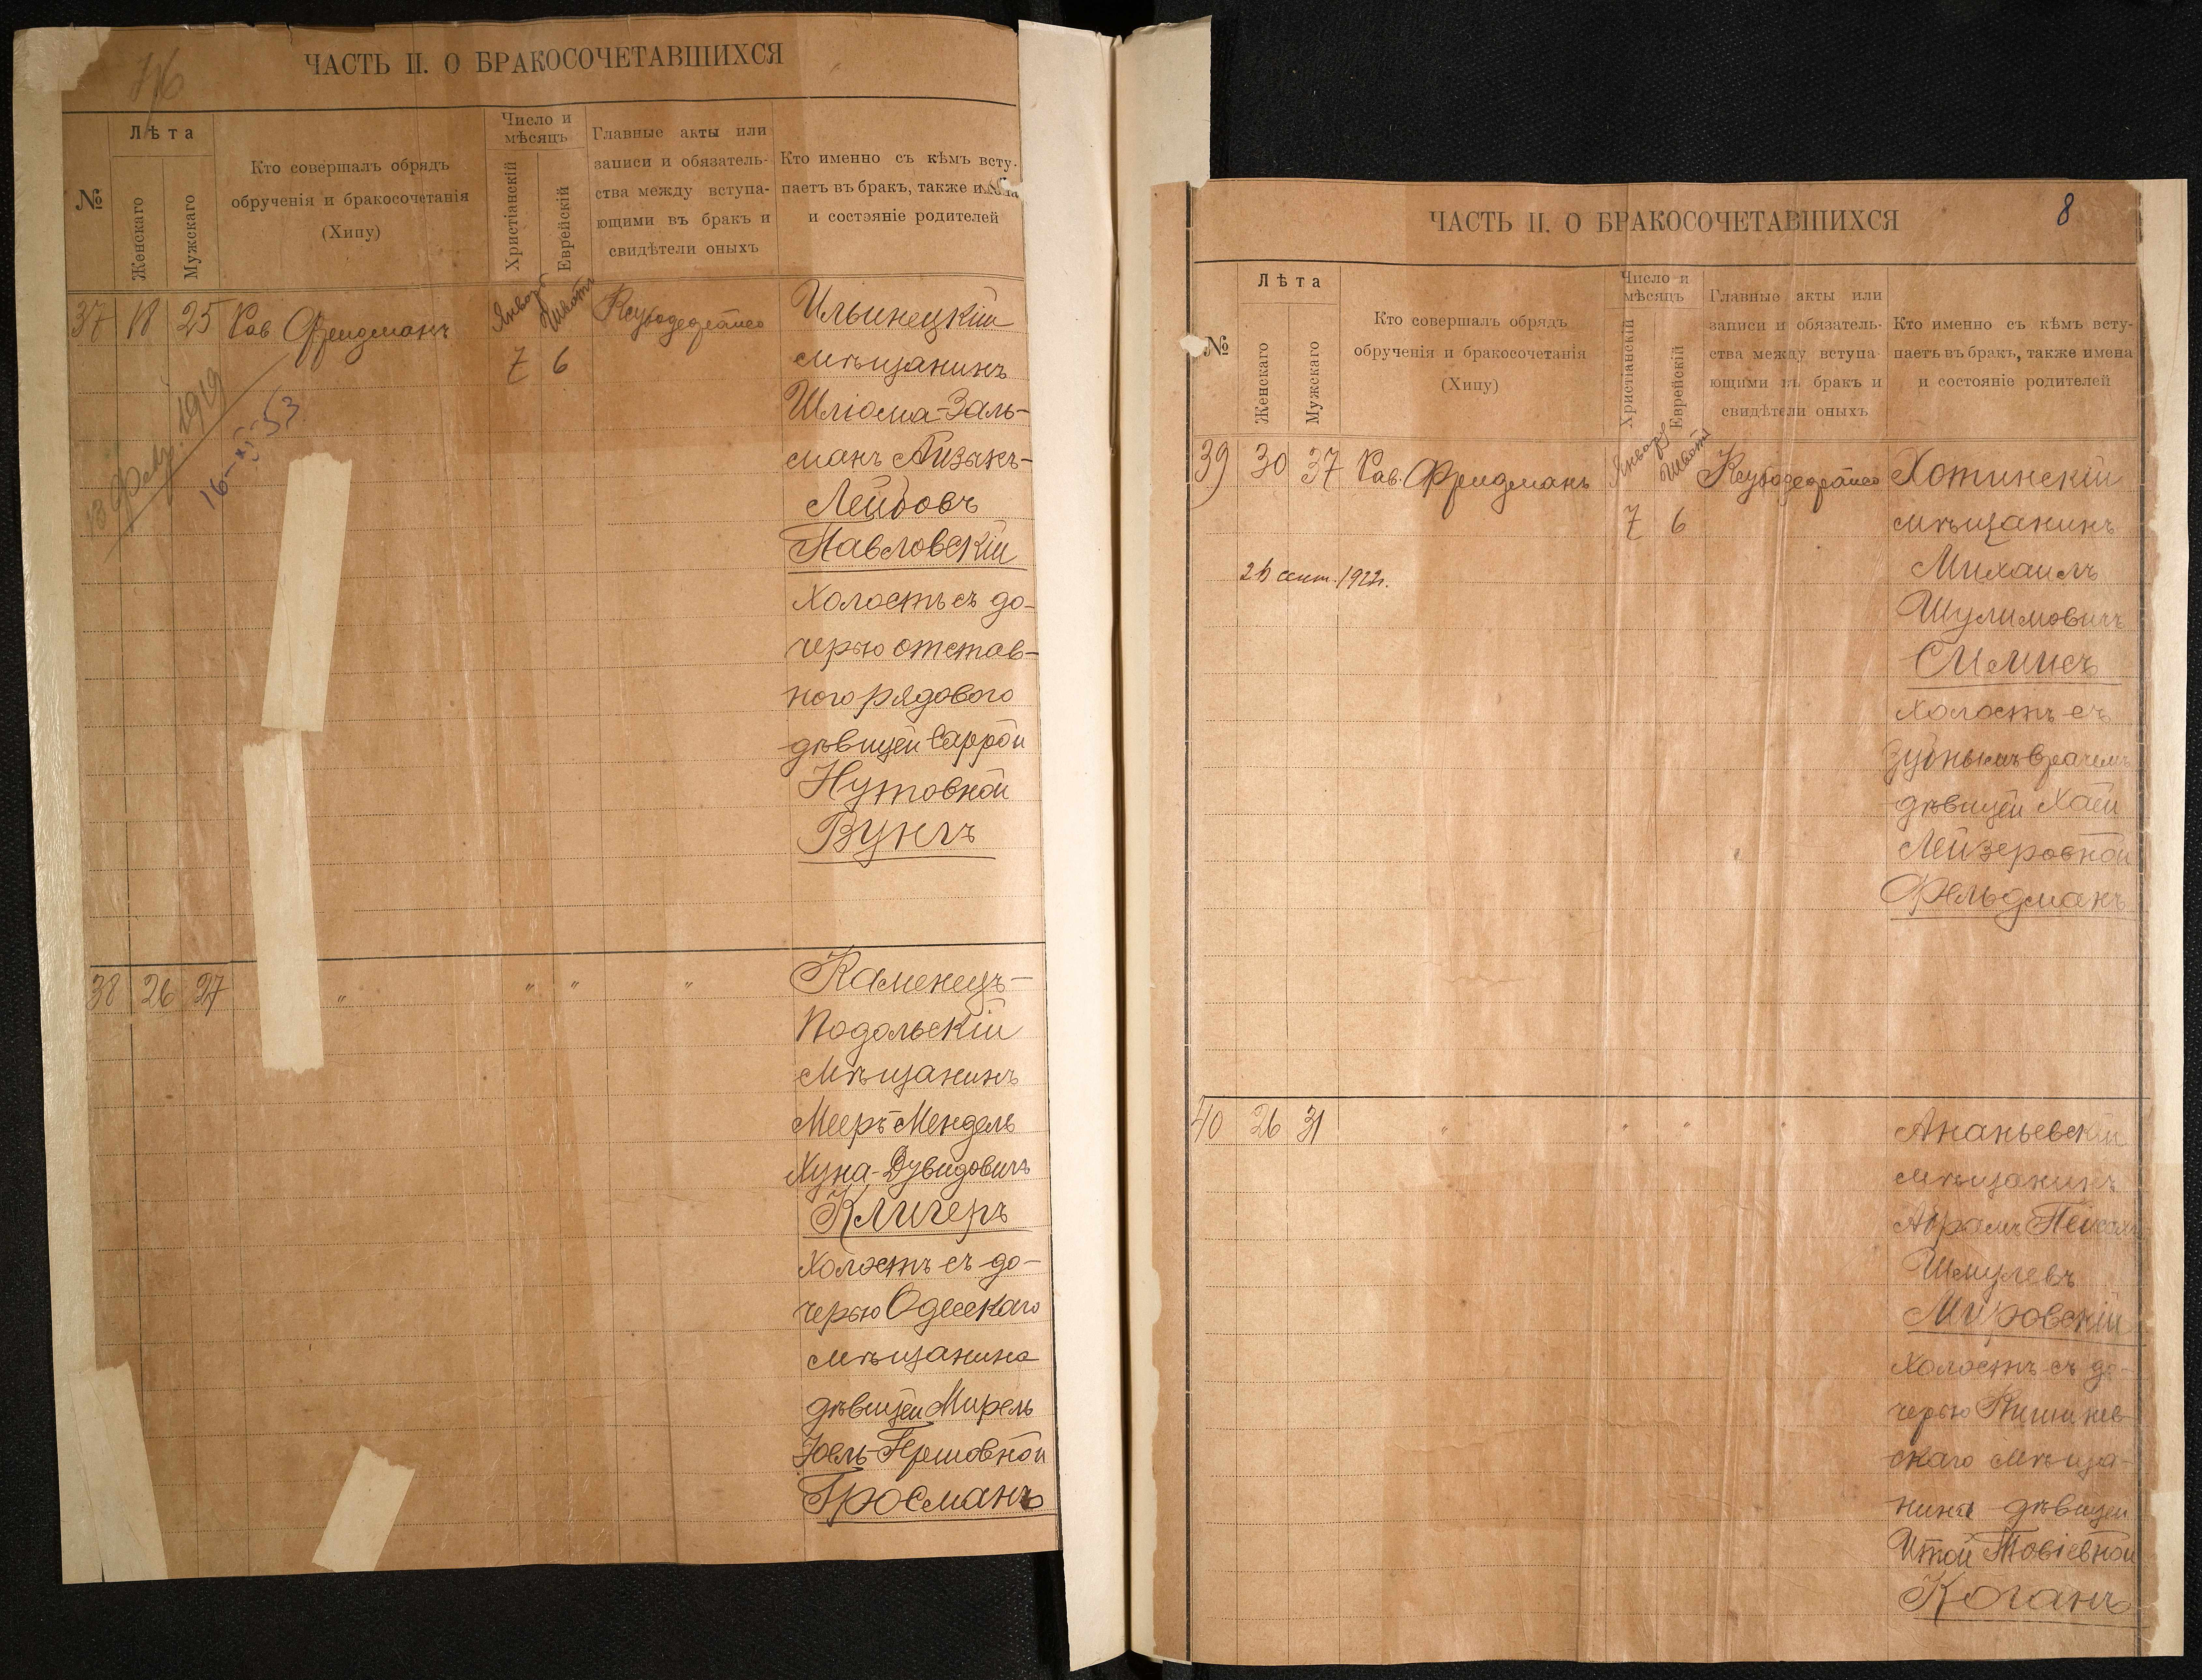 ЧАСТЬ II. О БРАКОСОЧЕТАВШИХСЯ
№
Лѣта
Женскаго
Мужскаго
Кто совершалъ обрядъ
обрученія и бракосочетанія
(Хипу)
Число и
мѣсяцъ
Христіанскій
Еврейскій
Главные акты или
записи и обязатель-
ства между вступа-
ющими въ бракъ и
свидѣтели оныхъ
Кто именно съ кѣмъ всту-
паетъ въ бракъ, также имена
и состояніе родителей
37 18 25 Рав. Фридманъ
Январь Шватъ
7 6
1919
16-XI-53
Ильинецкій
мѣщанинъ
Шлиома-Заль-
манъ Айзикъ-
Лейбовъ
Павловскій
холостъ съ до-
черью отстав-
ного рядового
дѣвицей Саррой
Нутовной
Вункъ
38 26 27 " " " "
Каменецъ-
Подольскій
мѣщанинъ
Мееръ-Мендель
Хуна-Дувидовичъ
Клигеръ
холостъ съ до-
черью Одесскаго
мѣщанина
дѣвицей Мирель
Іоель-Гершовной
Гросманъ
8
ЧАСТЬ II. О БРАКОСОЧЕТАВШИХСЯ
№
Лѣта
Женскаго
Мужскаго
Кто совершалъ обрядъ
обрученія и бракосочетанія
(Хипу)
Число и
мѣсяцъ
Христіанскій
Еврейскій
Главные акты или
записи и обязатель-
ства между вступа-
ющими въ бракъ и
свидѣтели оныхъ
Кто именно съ кѣмъ всту-
паетъ въ бракъ, также имена
и состояніе родителей
39 30 37 Рав. Фридманъ
Январь Шватъ
7 6
сент. 1922г.
Хотинскій
мѣщанинъ
Михаилъ
Шулимовичъ
холостъ съ
зубнымъ врачемъ
дѣвицей Хаей
Лейзеровной
Фельдманъ
40 26 31 " " " "
Ананьевскій
мѣщанинъ
Абрамъ Пейсахъ
Шмулевъ
Мировскій
холостъ съ до-
черью Кишинев-
скаго мѣща-
нина дѣвицей
Итой Товіевной
Коганъ